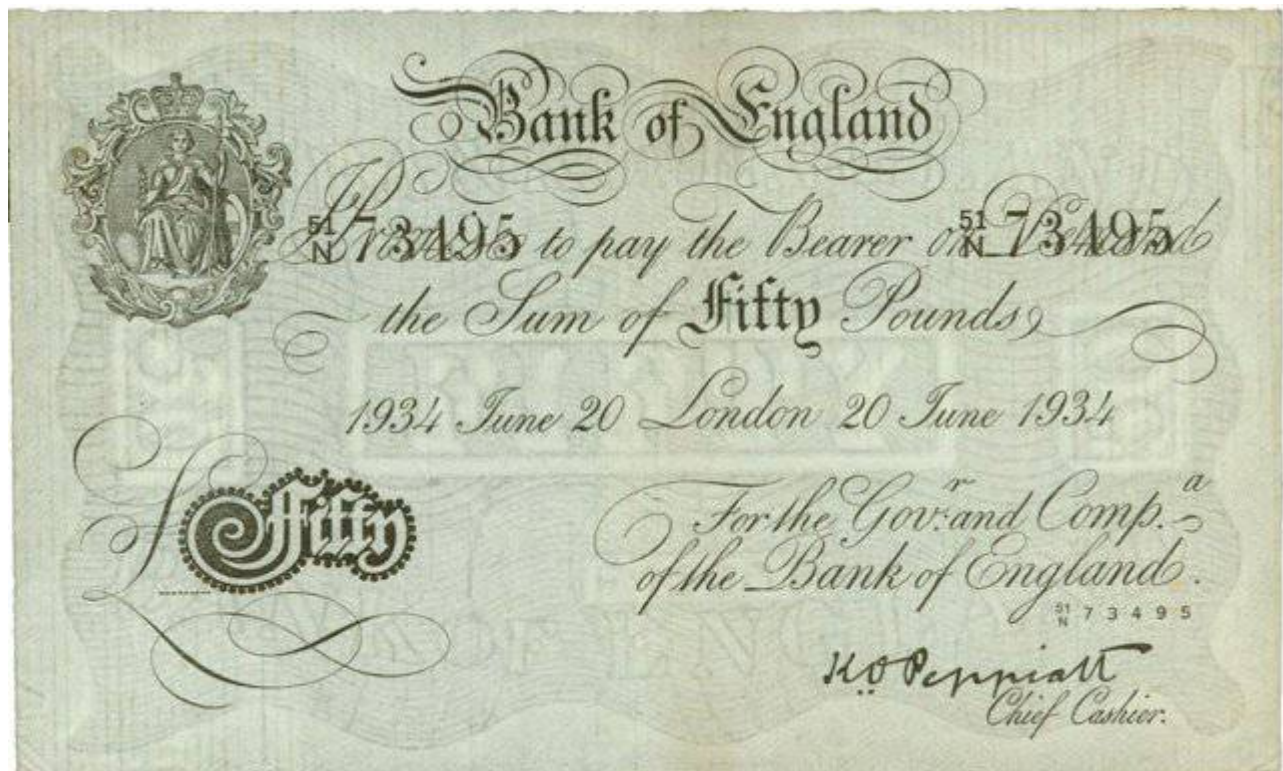 Bank of England
51/N 73495 I Promise to pay the Bearer on Demand 51/N 73495
the Sum of Fifty Pounds
1934 June 20 London 20 June 1934
£ Fifty
For the Gov.r and Comp.a
of the Bank of England.
51/N 73495
K.O. Peppiatt
Chief Cashier.